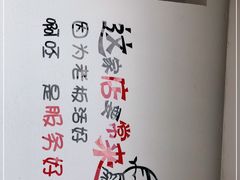 这家店要常来
因为老板活好
啊呸 是服务好